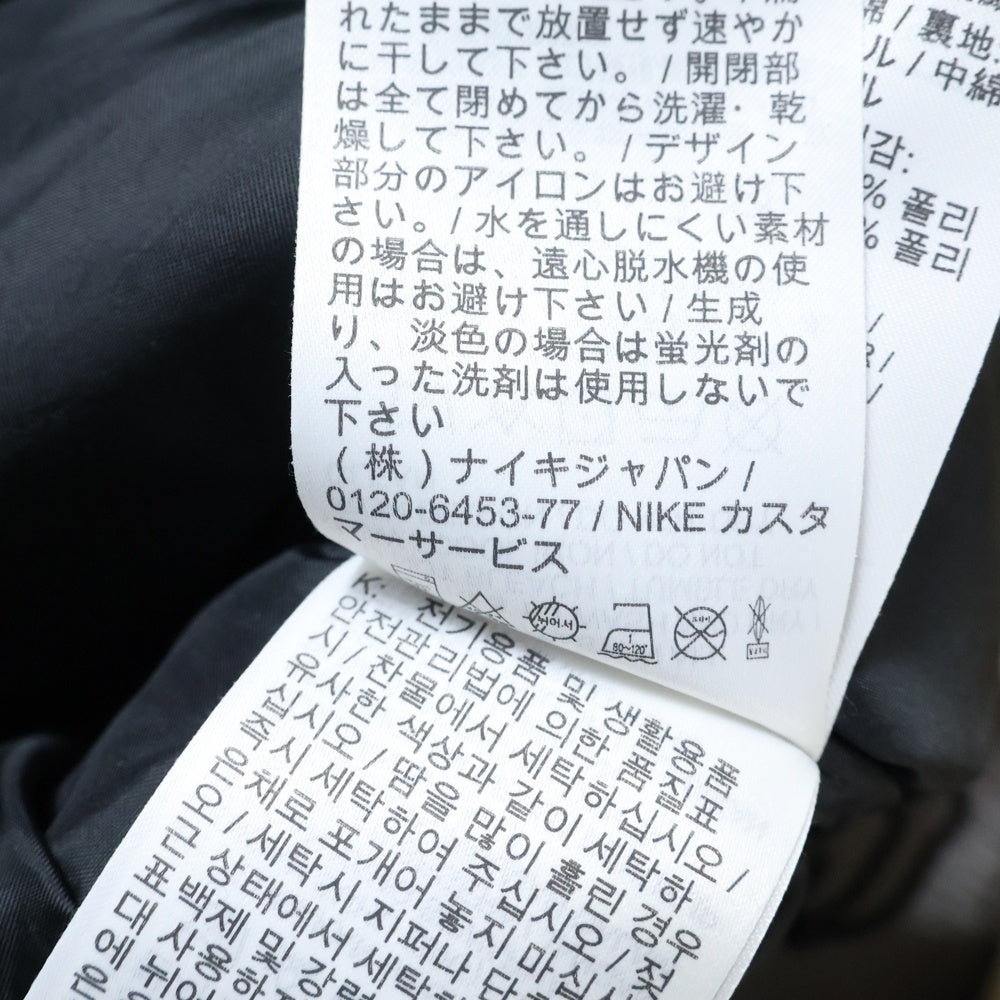 れたままで放置せず速やか
に干して下さい。/開閉部
は全て閉めてから洗濯・乾
燥して下さい。/デザイン
部分のアイロンはお避け下
さい。/水を通しにくい素材
の場合は、遠心脱水機の使
用はお避け下さい/生成
り、淡色の場合は蛍光剤の
入った洗剤は使用しないで
下さい
(株)ナイキジャパン/
0120-6453-77/NIKE カスタ
マーサービス
뉘어서
80~120°
드라이
K: 전기용품 및 생활용품
안전관리법에 의한 품질표
시/찬물에서 세탁하십시오/
유사한 색상과 같이 세탁하
십시오/땀을 많이 흘린 경우
즉시 세탁하여 주십시오/젖
은 채로 포개어 놓지 마십시
오/세탁시 지퍼나 단
근 상태에서 세탁
표백제 및 강력
대 사용하
에 뉘어
은
/裏地:
ル/中綿
ル
감:
% 폴리
% 폴리